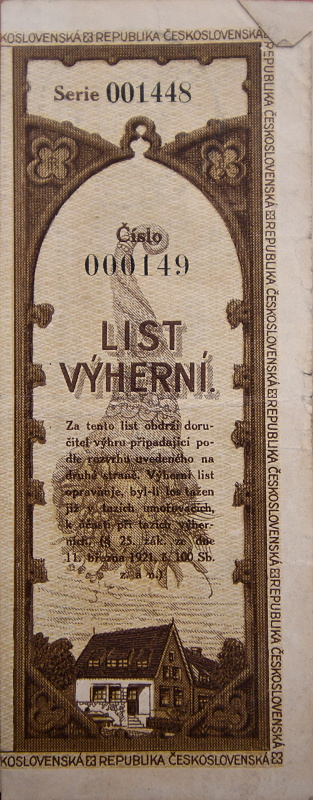 KOSLOVENSKÁ REPUBLIKA ČESKOSLOVENSKÁ
Serie 001448
Číslo
000149
LIST
VÝHERNÍ.
Za tento list obdrží doru-
čitel výhru připadající po-
dle rozvrhu uvedeného na
druhé straně. Výherní list
opravňuje, byl-li los tažen
již v tazích umořovacích,
k účasti při tazích výher-
ních. (§ 25. zák. ze dne
11. března 1921, č. 100 Sb.
z. a n.)
REPUBLIKA ČESKOSLOVENSKÁ REPUBLIKA ČESKOSLOVENSKÁ REPUBLIKA ČESKOSLOVENSKÁ REPUBLIKA ČESKOSLOVENSKÁ
KOSLOVENSKÁ REPUBLIKA ČESKOSLOVENSKÁ